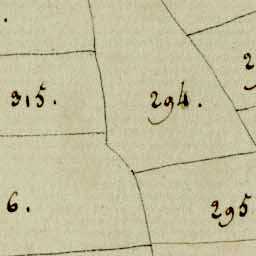 315.
294.
6.
295